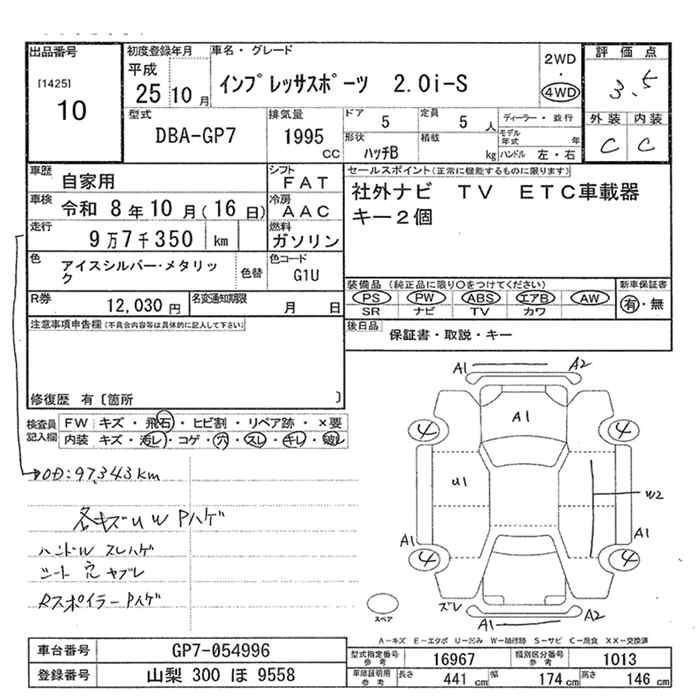 出品番号
[1425]
10
初度登録年月
平成
25 10月
車名・グレード
インプレッサスポーツ 2.0i-S
2WD
・
4WD
評価点
3.5
外装 内装
C C
型式
DBA-GP7
排気量
1995
CC
ドア 5
定員 5 人
形状
ハッチB
積載
kg
ディーラー・並行
モデル年式 年
ハンドル 左・右
車歴 自家用
車検 令和 8年10月(16日)
走行 9万7千350 km
色 アイスシルバー・メタリック
色替
シフト
FAT
冷房
AAC
燃料
ガソリン
色コード
G1U
セールスポイント(正常に機能するものに限ります)
社外ナビ TV ETC車載器
キー2個
R券 12,030円
名変通知期限 月 日
装備品(純正品に限り○をつけてください)
PS PW ABS エアB AW
SR ナビ TV カワ
新車保証書
有・無
後日品 保証書・取説・キー
注意事項申告欄(不具合内容等は具体的に記入して下さい)
修復歴 有〔箇所 〕
検査員記入欄
FW キズ・飛石・ヒビ割・リペア跡・×要
内装 キズ・汚レ・コゲ・穴・スレ・キレ・破レ
→OD:97,343km
各キズU W Pハゲ
ハンドル スレハゲ
シート 穴 ヤブレ
Rスポイラー Pハゲ
A1 A2
A1
4 4
U1
W2
A1 A1
4 4
ズレ
A1 A2
スペア
A-キズ E-エクボ U-凹み W-補修跡 S-サビ C-腐食 XX-交換済
車台番号 GP7-054996
登録番号 山梨 300 ほ 9558
型式指定番号 参考 16967
類別区分番号 参考 1013
車庫証明用 参考 長さ 441 cm 幅 174 cm 高さ 146 cm